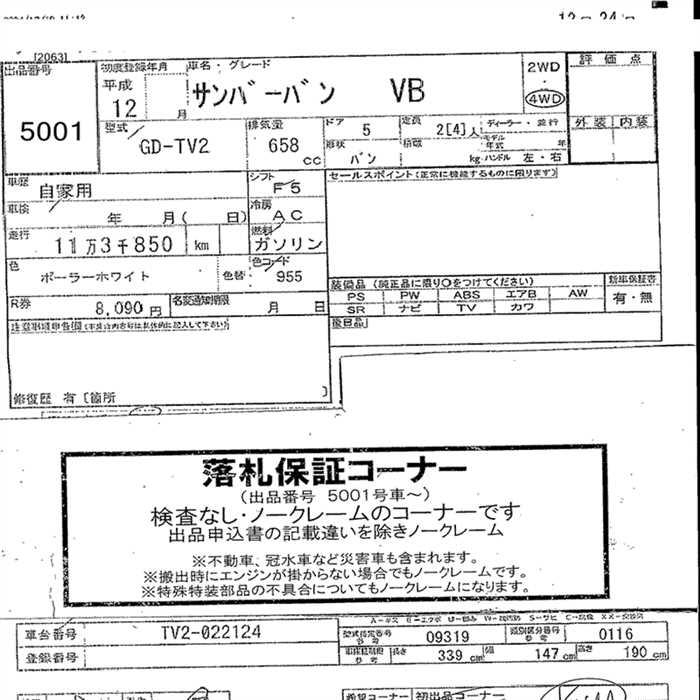 [2063]
出品番号
5001
初度登録年月
平成
12
月
車名・グレード
サンバーバン VB
2WD
・
4WD
評価点
外装 内装
型式
GD-TV2
排気量
658
cc
ドア
5
形状
バン
定員
2[4]人
積載
kg
ディーラー・並行
モデル年式
年
ハンドル 左・右
車歴
自家用
シフト
F5
車検
年 月( 日)
冷房
AC
走行
11万3千850 km
燃料
ガソリン
色
ポーラーホワイト
色替
色コード
955
R券
8,090円
名変通知期限
月 日
セールスポイント(正常に機能するものに限ります)
装備品(純正品に限り○をつけてください)
PS PW ABS エアB AW
SR ナビ TV カワ
新車保証書
有・無
後日品
注意事項申告欄(不具合内容は具体的に記入して下さい)
修復歴 有〔箇所 〕
落札保証コーナー
(出品番号 5001号車~)
検査なし・ノークレームのコーナーです
出品申込書の記載違いを除きノークレーム
※不動車、冠水車など災害車も含まれます。
※搬出時にエンジンが掛からない場合でもノークレームです。
※特殊特装部品の不具合についてもノークレームになります。
車台番号
TV2-022124
登録番号
型式指定番号
参考
09319
類別区分番号
参考
0116
車検証記載
参考
長さ
339 cm
幅
147 cm
高さ
190 cm
希望コーナー
初出品コーナー